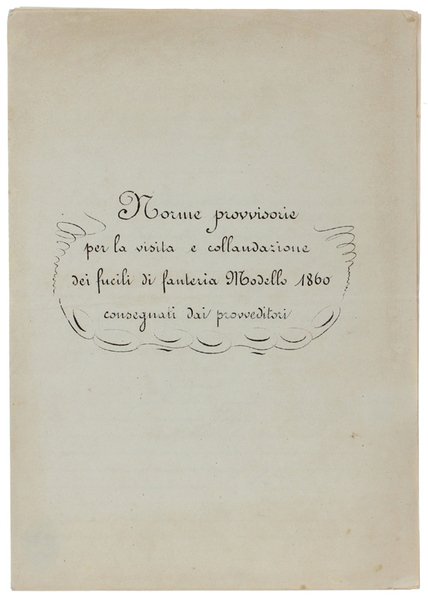 Norme provvisorie
per la visita e collaudazione
dei fucili di fanteria Modello 1860
consegnati dai provveditori